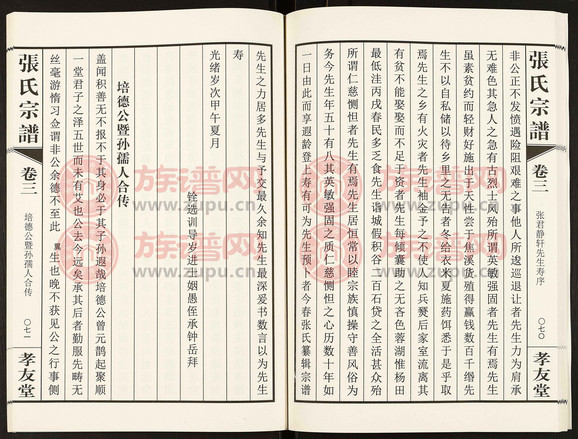 張氏宗譜
卷三
张君静轩先生寿序
〇七〇
孝友堂
非公正不发愤遇险阻艰难之事他人所逡巡退让者先生力为肩承
无难色其急人之急有古烈士风殆所谓英敏强固者有焉先生
虽素贫约而轻财好施出于天性尝于焦溪货殖得赢钱数百千缗先
生不以自私储以待乡里之无告者冬给衣米夏施药饵悉于是乎取
焉先生之乡有火灾者先生袖金予之不使人知兵燹后家室流离其
有贫不能娶娶而不足于资者先生每倾囊助之无吝色蓉湖惟杨田
最低洼丙戌春民多乏食先生请城假积谷二百石贷之全活甚众殆
所谓仁慈恻怛者有焉先生居恒常以睦宗族慎操守善风俗为
务今先生年五十有八其英敏强固之质仁慈恻怛之心历数十年如
一日由此而享遐龄登上寿有可为先生预卜者今春张氏纂辑宗谱
先生之力居多先生与予交最久余知先生最深爰书数言以为先生
寿
光绪岁次甲午夏月
铨选训导岁进士姻愚侄承钟岳拜
培德公暨孙孺人合传
盖闻积善无不报不于其身必于其子孙遐哉培德公曾元鹊起聚顺
一堂君子之泽五世而未有艾也公去今远矣承其后者勤服先畴无
丝毫游惰习佥谓非公余德不至此翼生也晚不获见公之行事侧
張氏宗譜
卷三
培德公暨孙孺人合传
〇七一
孝友堂
族谱网
www.zupu.cn
族谱网
www.zupu.cn